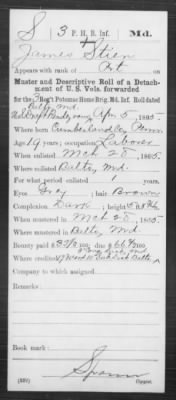 S 3 P. H. B. Inf. Md.
James Stien
Appears with rank of Pvt on
Muster and Descriptive Roll of a Detachment
of U. S. Vols. forwarded
for the 3 Reg't Potomac Home Brig. Md. Inf. Roll dated
Balto Md. Apr 5, 1865
Where born Cumberland Co Penn
Age 19 years; occupation Laborer
When enlisted Mch 28, 1865
Where enlisted Balto, Md.
For what period enlisted 1 years.
Eyes Grey; hair Brown
Complexion Dark; height 5 ft. in.
When mustered in Mch 28, 1865
Where mustered in Balto Md.
Bounty paid $ 33 /100; due $ 66 /100
Where credited 17 Ward Balto
Company to which assigned
Remarks:
Book mark:
Spamer
(339) Copyist.